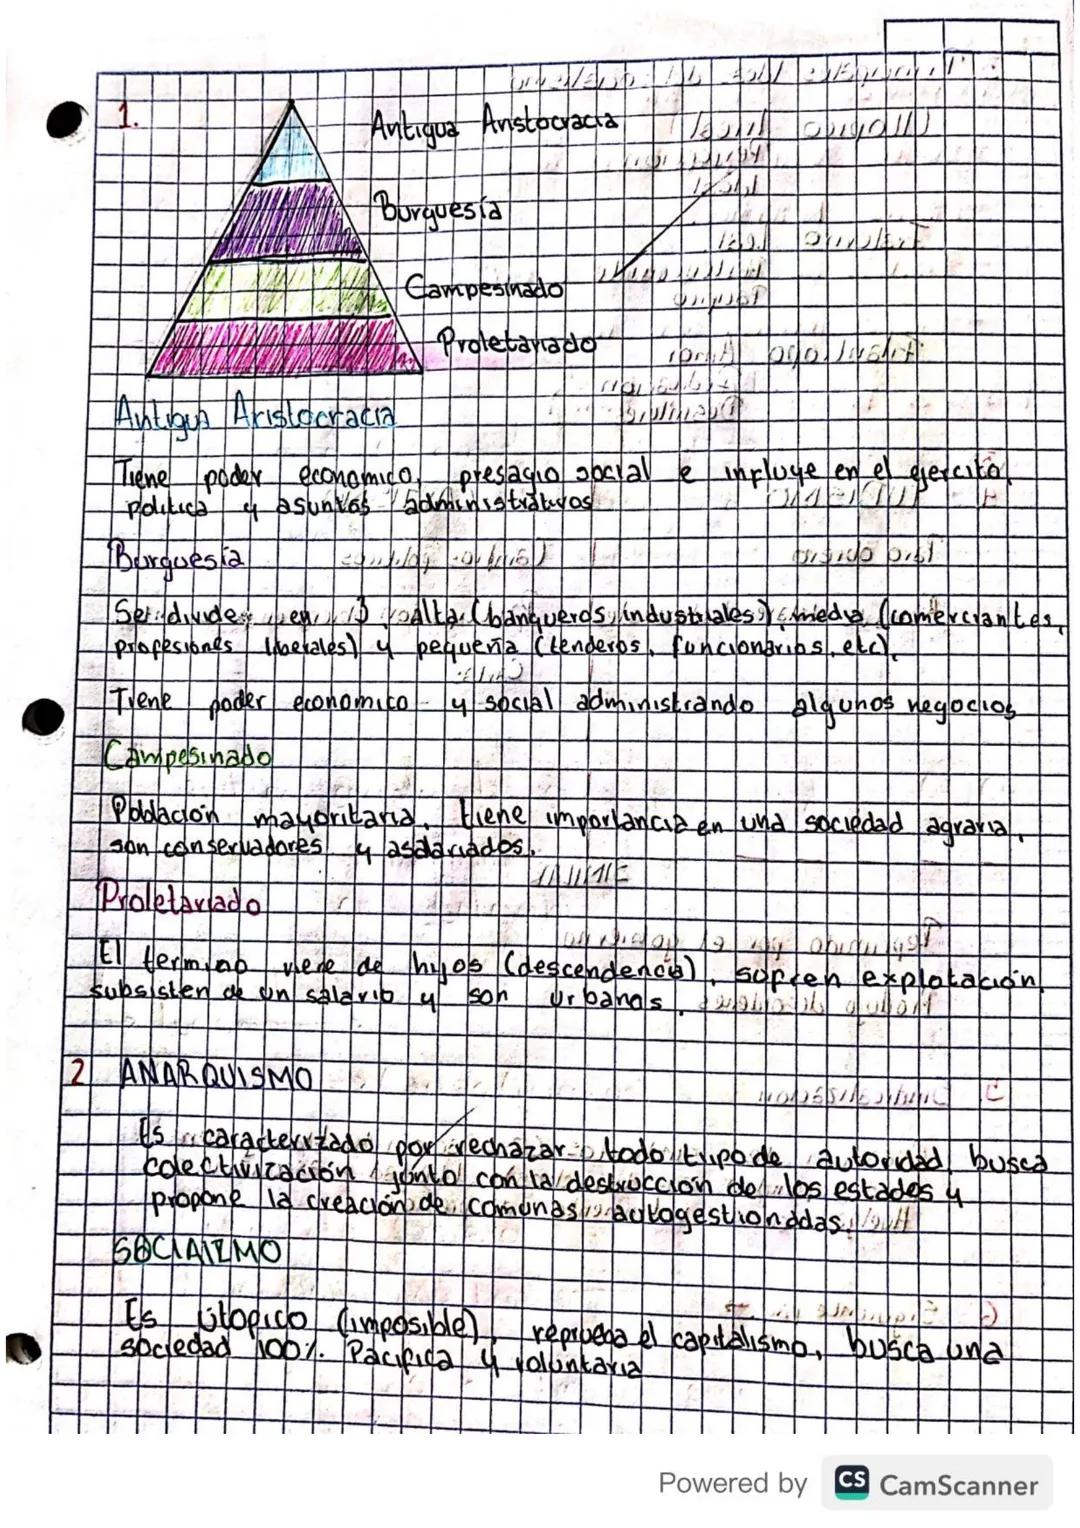 1.
Antigua Aristocracia
Burguesía
Campesinado
Proletariado
Antigua Aristocracia
Tiene poder economico, presagio social e influye en el ejercito,
politica y asuntos administrativos
Burguesía
Se divide en 3 alta (banqueros, industriales), media (comerciantes,
profesiones liberales) y pequeña (tenderos, funcionarios, etc).
Tiene poder economico y social administrando algunos negocios
Campesinado
Población mayoritaria, tiene importancia en una sociedad agraria,
son conservadores y asalariados.
Proletariado
El termino viene de hijos (descendencia), sufren explotación,
subsisten de un salario y son urbanos.
2 ANARQUISMO
Es caracterizado por rechazar todo tipo de autoridad, busca
colectivización junto con la destrucción de los estados y
propone la creación de comunas autogestionadas
SOCIAIZMO
Es útopico (imposible), reprueba el capitalismo, busca una
sociedad 100% Pacifica y voluntaria
Powered by CS CamScanner